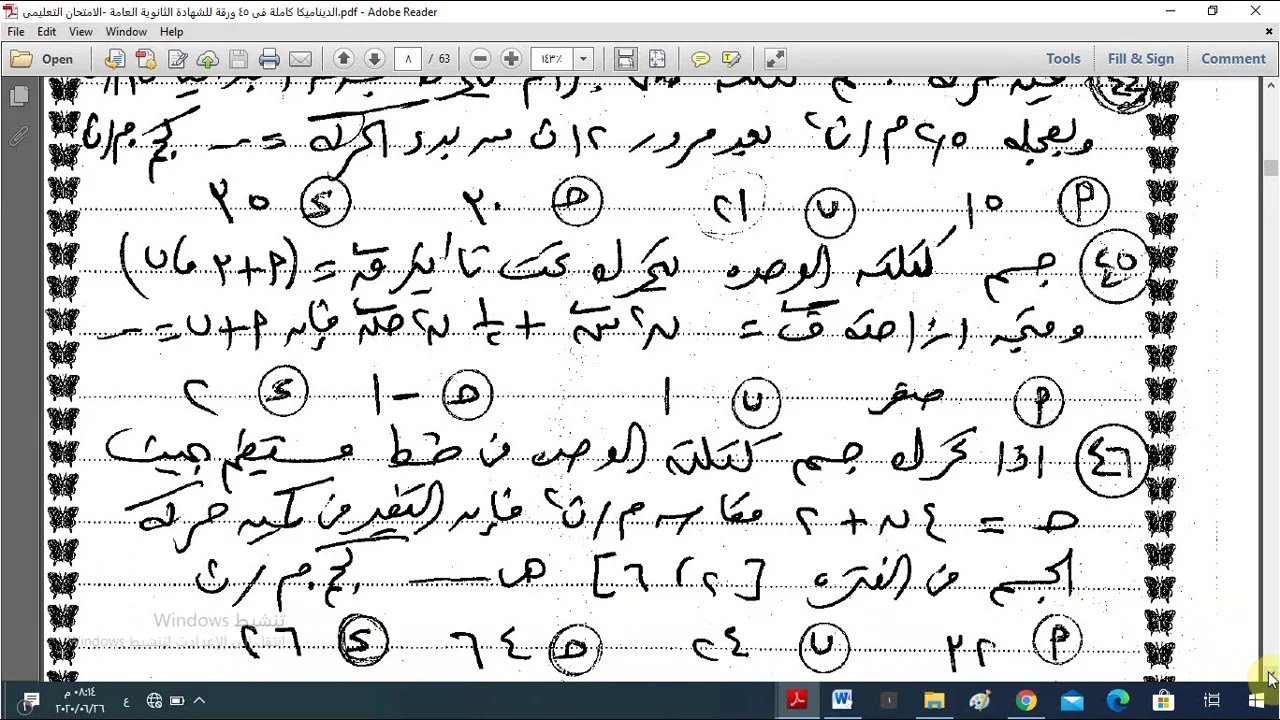 الديناميكا كاملة فى ٤٥ ورقة للشهادة الثانوية العامة -الامتحان التعليمى.pdf - Adobe Reader
File Edit View Window Help
Open ٨ / 63 ١٤٣٪ Tools Fill & Sign Comment
وبعجلة م/ث٢ بعد مرور ١٢ث من بدء الحركة = ــ كجم.م/ث
أ ١٥ ب ٢١ حـ ٣٠ د ٣٥
٤٥ جسم كتلته الوحدة يتحرك تحت تأثير قوة = (أ+٢ ، ب)
ومتجه ازاحته ف = ن٢ س + ½ ن٢ ص فإن أ+ب = ــ
أ صفر ب ١ حـ -١ د ٢
٤٦ اذا تحرك جسم كتلته الوحدة فى خط مستقيم بحيث
حـ = ٤ن + ٢ مقاسه م/ث٢ فإن التغير فى كمية حركة
الجسم فى الفترة [٢ ، ٦] هى ــ كجم.م/ث
أ ٣٢ ب ٢٤ حـ ٦٤ د ٢٦
تنشيط Windows
٠٨:١٤ م
٢٠٢٠/٠٦/٢٦
ع